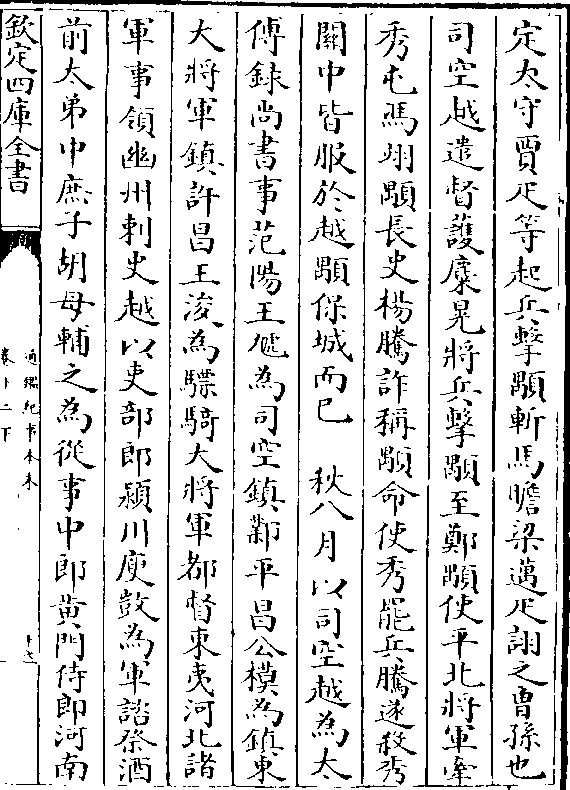 定太守賈疋等起兵擊顒斬馬瞻梁邁疋詡之曾孫也
司空越遣督護麋晃將兵擊顒至鄭顒使平北將軍牽
秀屯馮翊顒長史楊騰詐稱顒命使秀罷兵騰遂殺秀
關中皆服於越顒保城而已　秋八月以司空越為太
傅錄尚書事范陽王虓為司空鎮鄴平昌公模為鎮東
大將軍鎮許昌王浚為驃騎大將軍都督東夷河北諸
軍事領幽州刺史越以吏部郎潁川庾敳為軍諮祭酒
前太弟中庶子胡母輔之為從事中郎黃門侍郎河南
欽定四庫全書
通鑑紀事本末
卷十二下